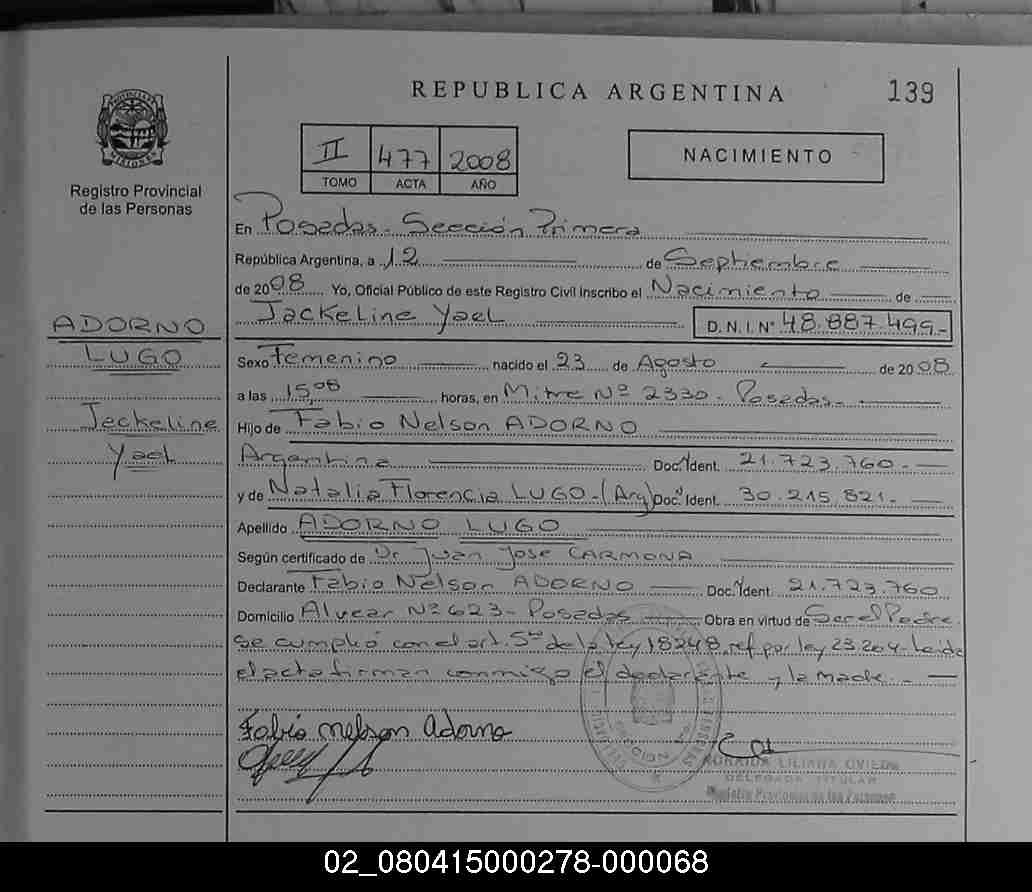 REPUBLICA ARGENTINA
139
PROVINCIA DE MISIONES
Registro Provincial
de las Personas
II 477 2008
TOMO ACTA AÑO
NACIMIENTO
En Posadas - Sección Primera
República Argentina, a 12 de Septiembre
de 2008 Yo, Oficial Público de este Registro Civil inscribo el Nacimiento de
Jackeline Yael D.N.I. N° 48.887.499-
ADORNO
LUGO
Jackeline
Yael
Sexo Femenino nacido el 23 de Agosto de 2008
a las 15,08 horas, en Mitre Nº 2330 - Posadas -
Hijo de Fabio Nelson ADORNO
Argentina Doc. Ident. 21.723.760 -
y de Natalia Florencia LUGO - (Arg) Doc. Ident. 30.215.821 -
Apellido ADORNO LUGO
Según certificado de Dr Juan Jose CARMONA
Declarante Fabio Nelson ADORNO Doc. Ident. 21.723.760
Domicilio Alvear Nº 623 - Posadas Obra en virtud de Ser el Padre.
se cumplió con el art. 5to de la ley 18248, ref por ley 23.264 - Leída
el acta firman conmigo el declarante y la madre. -
Fabio Nelson Adorno
ZORAIDA LILIANA OVIEDO
DELEGADA TITULAR
Registro Provincial de las Personas
02_080415000278-000068